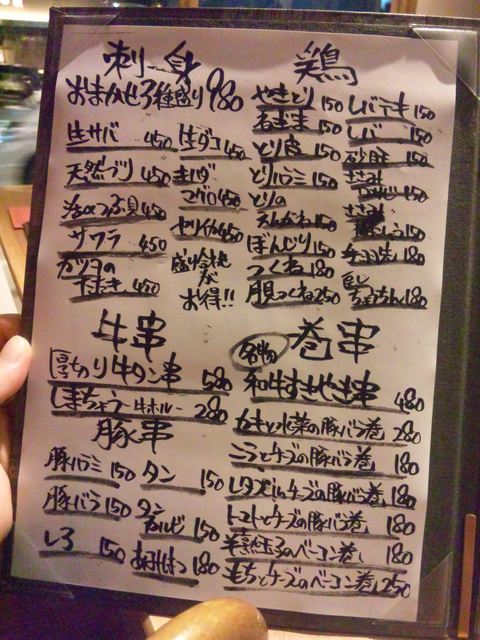 刺身
おまかせ3種盛り 980
生サバ 450
天然ブリ 450
活つぶ貝 450
サワラ 450
カツオの
たたき 450
生ダコ 450
キハダ
マグロ 450
ヤリイカ 450
盛り合せが
お得!!
鶏
やきとり 150
ねぎま 150
とり皮 150
とりハラミ 150
とりの
えんがわ 150
ぼんじり 150
つくね 180
月見つくね 250
レバテキ 150
レバー 150
砂肝 150
ささみ
わさび 150
ささみ
150
180
ちょうちん 180
牛串
厚切り牛タン串 580
しまちょう 牛ホルモン 280
豚串
豚ハラミ 150
豚バラ 150
しろ 150
タン 150
タン
カルビ 150
180
名物
巻串
和牛すきやき串 480
カキと水菜の豚バラ巻 280
ニラとチーズの豚バラ巻 180
レタスとチーズの豚バラ巻 180
トマトとチーズの豚バラ巻 180
半熟玉子のベーコン巻 180
もちとチーズのベーコン巻 250